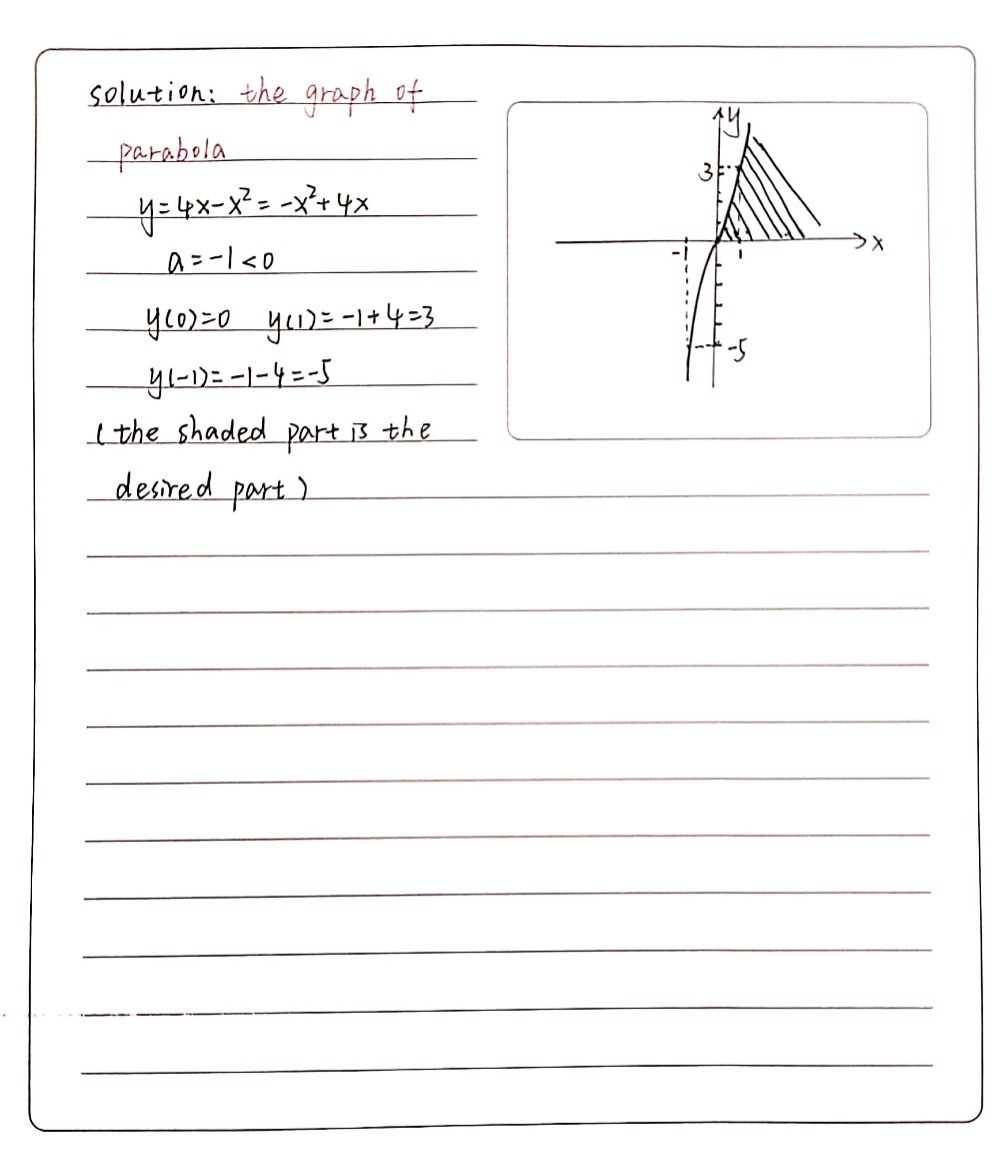 solution: the graph of
parabola
y=4x-x²=-x²+4x
a=-1<0
y(0)=0 y(1)=-1+4=3
y(-1)=-1-4=-5
(the shaded part is the
desired part)
y
3
-1 1 x
-5